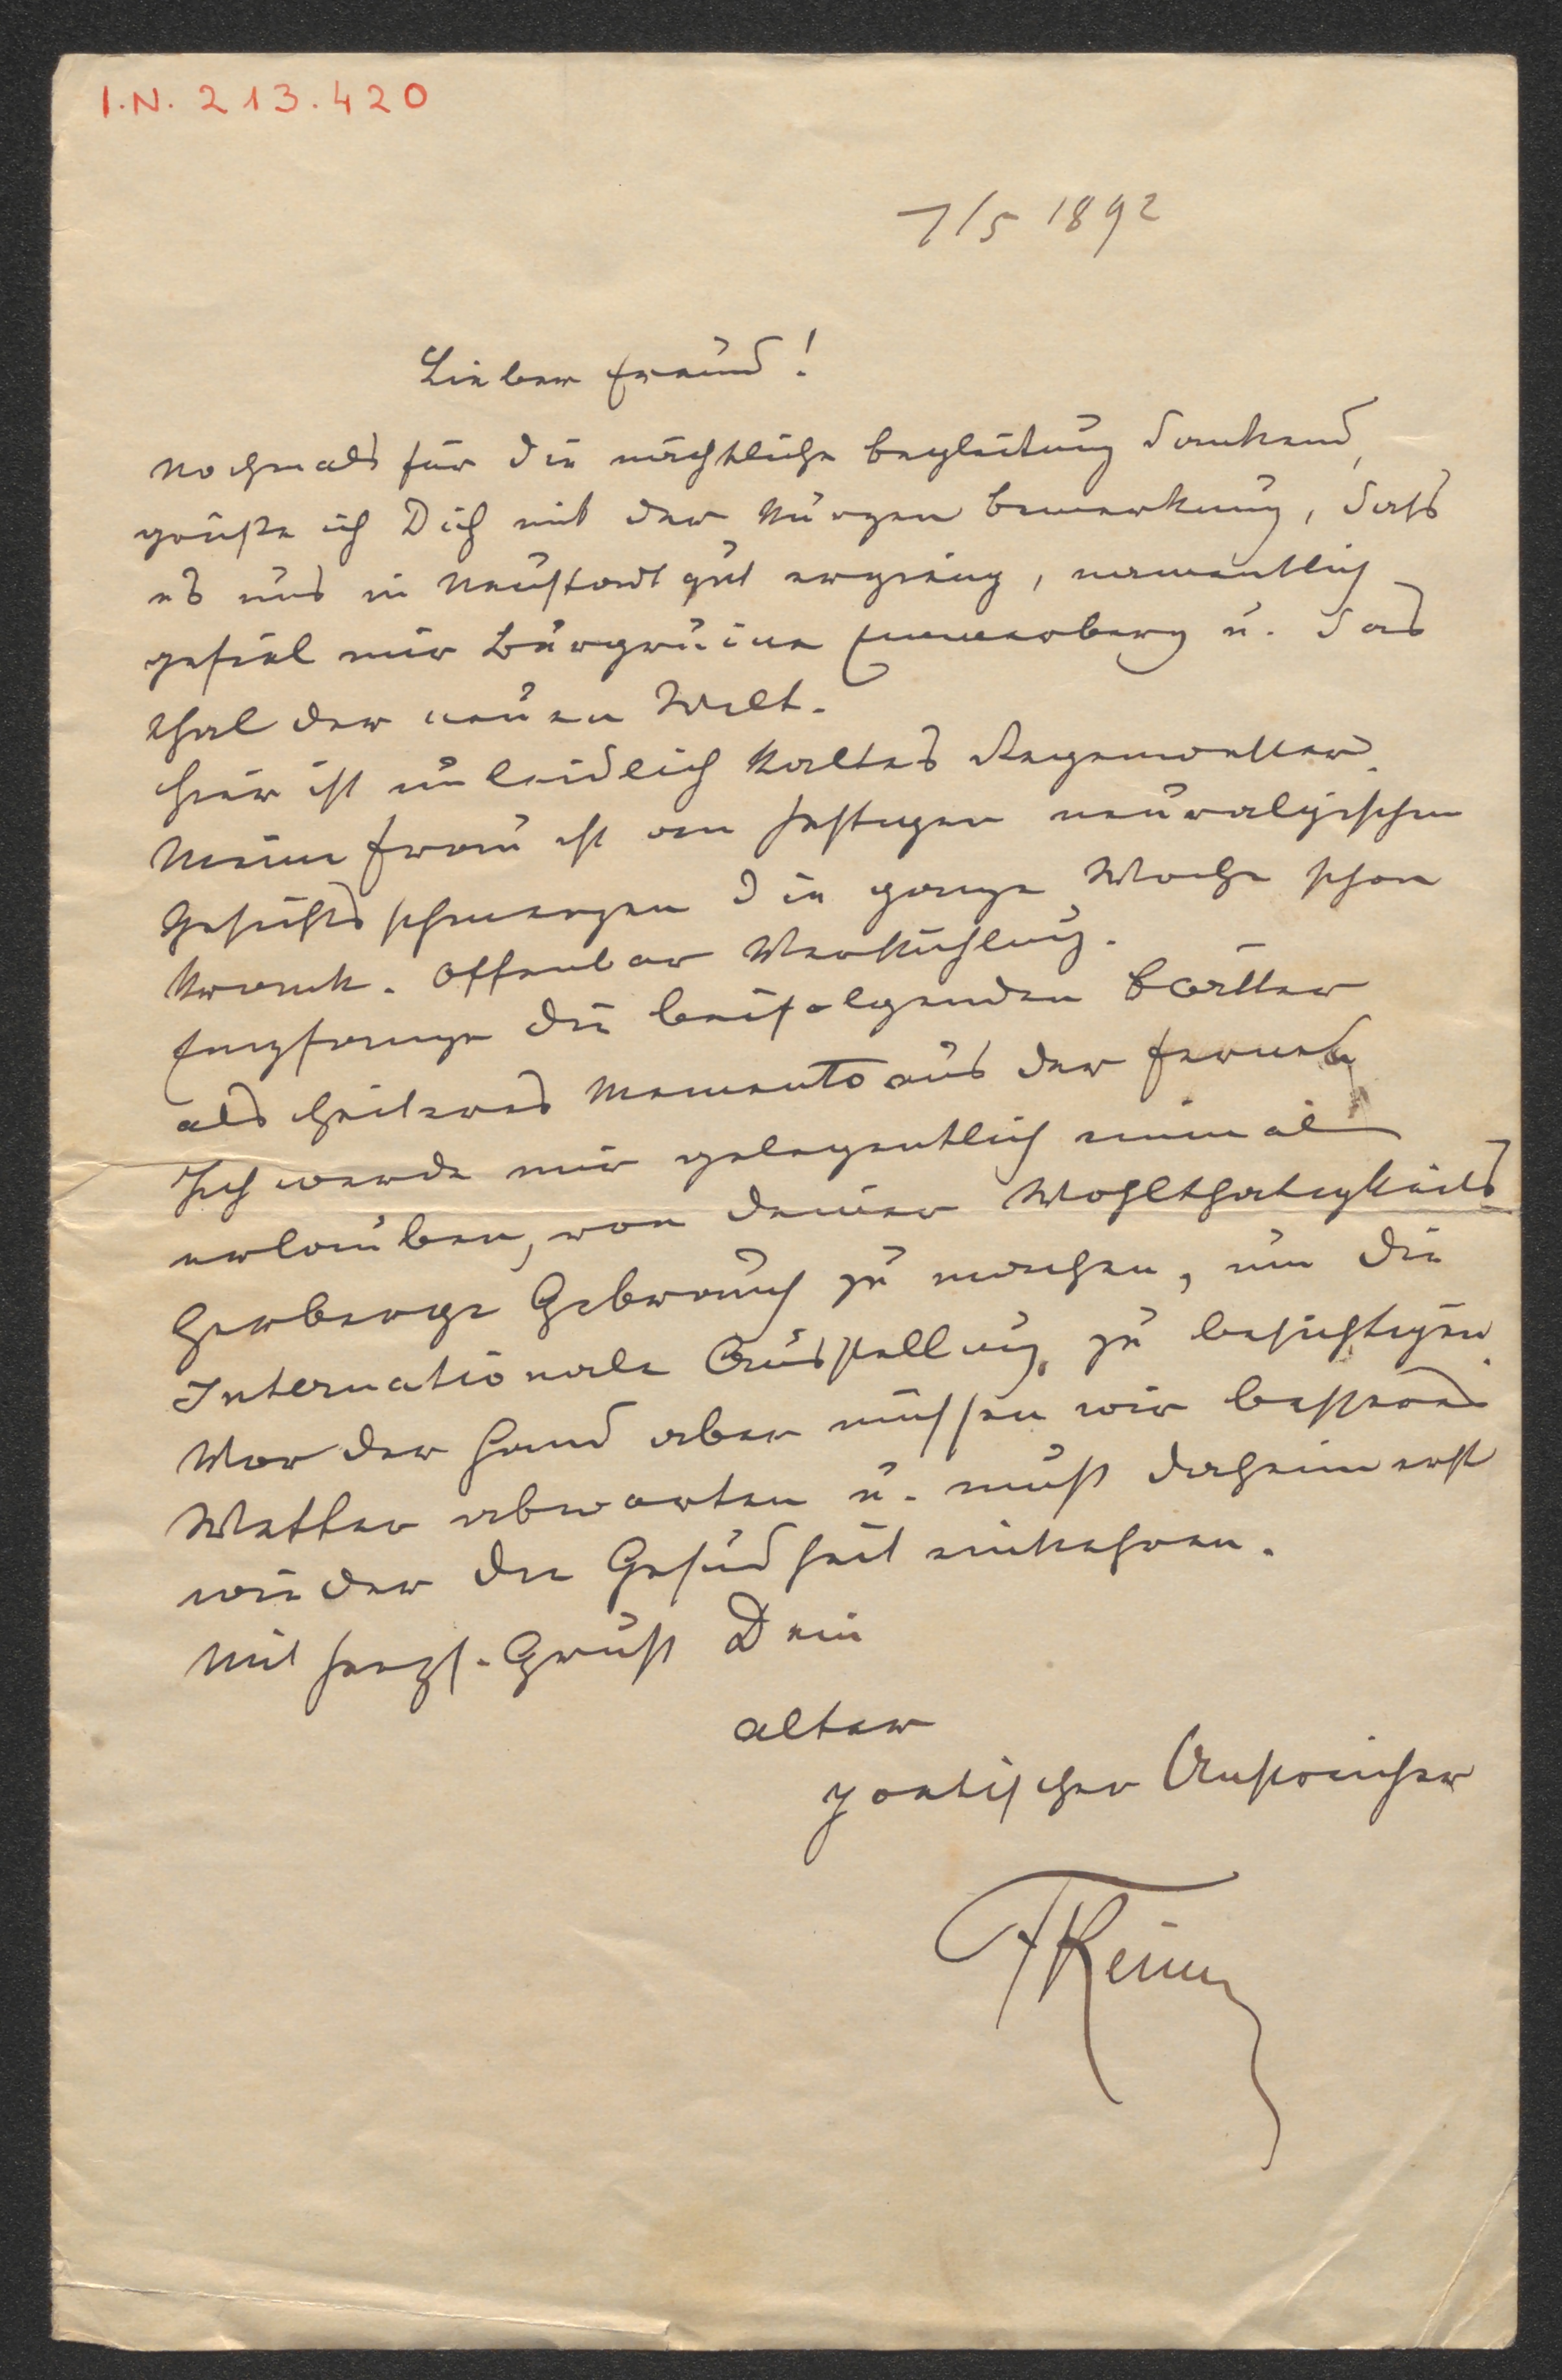 I.N. 213.420
7/5 1892
Lieber Freund!
Nochmals für die nächtliche Begleitung dankend,
grüße ich Dich mit der kurzen Bemerkung, dass
es uns in Neustadt gut ergieng, namentlich
gefiel mir Burgruine Emmerberg u. das
Thal der neuen Welt.
Hier ist unleidlich kaltes Regenwetter.
Meine Frau ist an heftigen neuralgischen
Gesichtsschmerzen die ganze Woche schon
krank. Offenbar Verkühlung.
Empfange die beifolgenden Blätter
als heiteres Memento aus der Ferne.
Ich werde mir gelegentlich einmal
erlauben, von Deiner Wohlthatigkeits
herberge Gebrauch zu machen, um die
Internationale Ausstellung zu besichtigen.
Vor der Hand aber müssen wir besseres
Wetter abwarten u. muß daheim erst
wieder die Gesundheit einkehren.
Mit herzl. Gruß Dein
alter
poetischer Anstreicher
FKeim